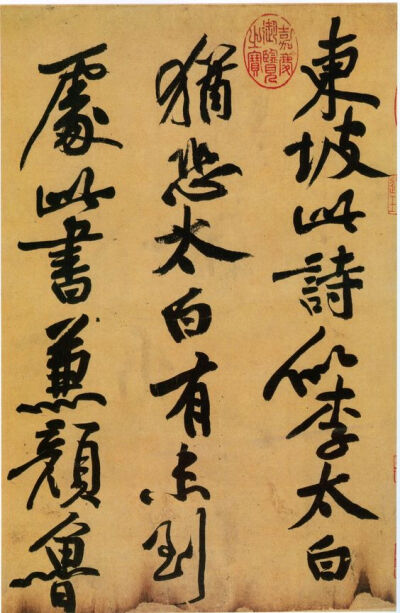 東坡此詩似李太白
猶恐太白有未到
處此書兼顔魯
嘉慶御覽之寶